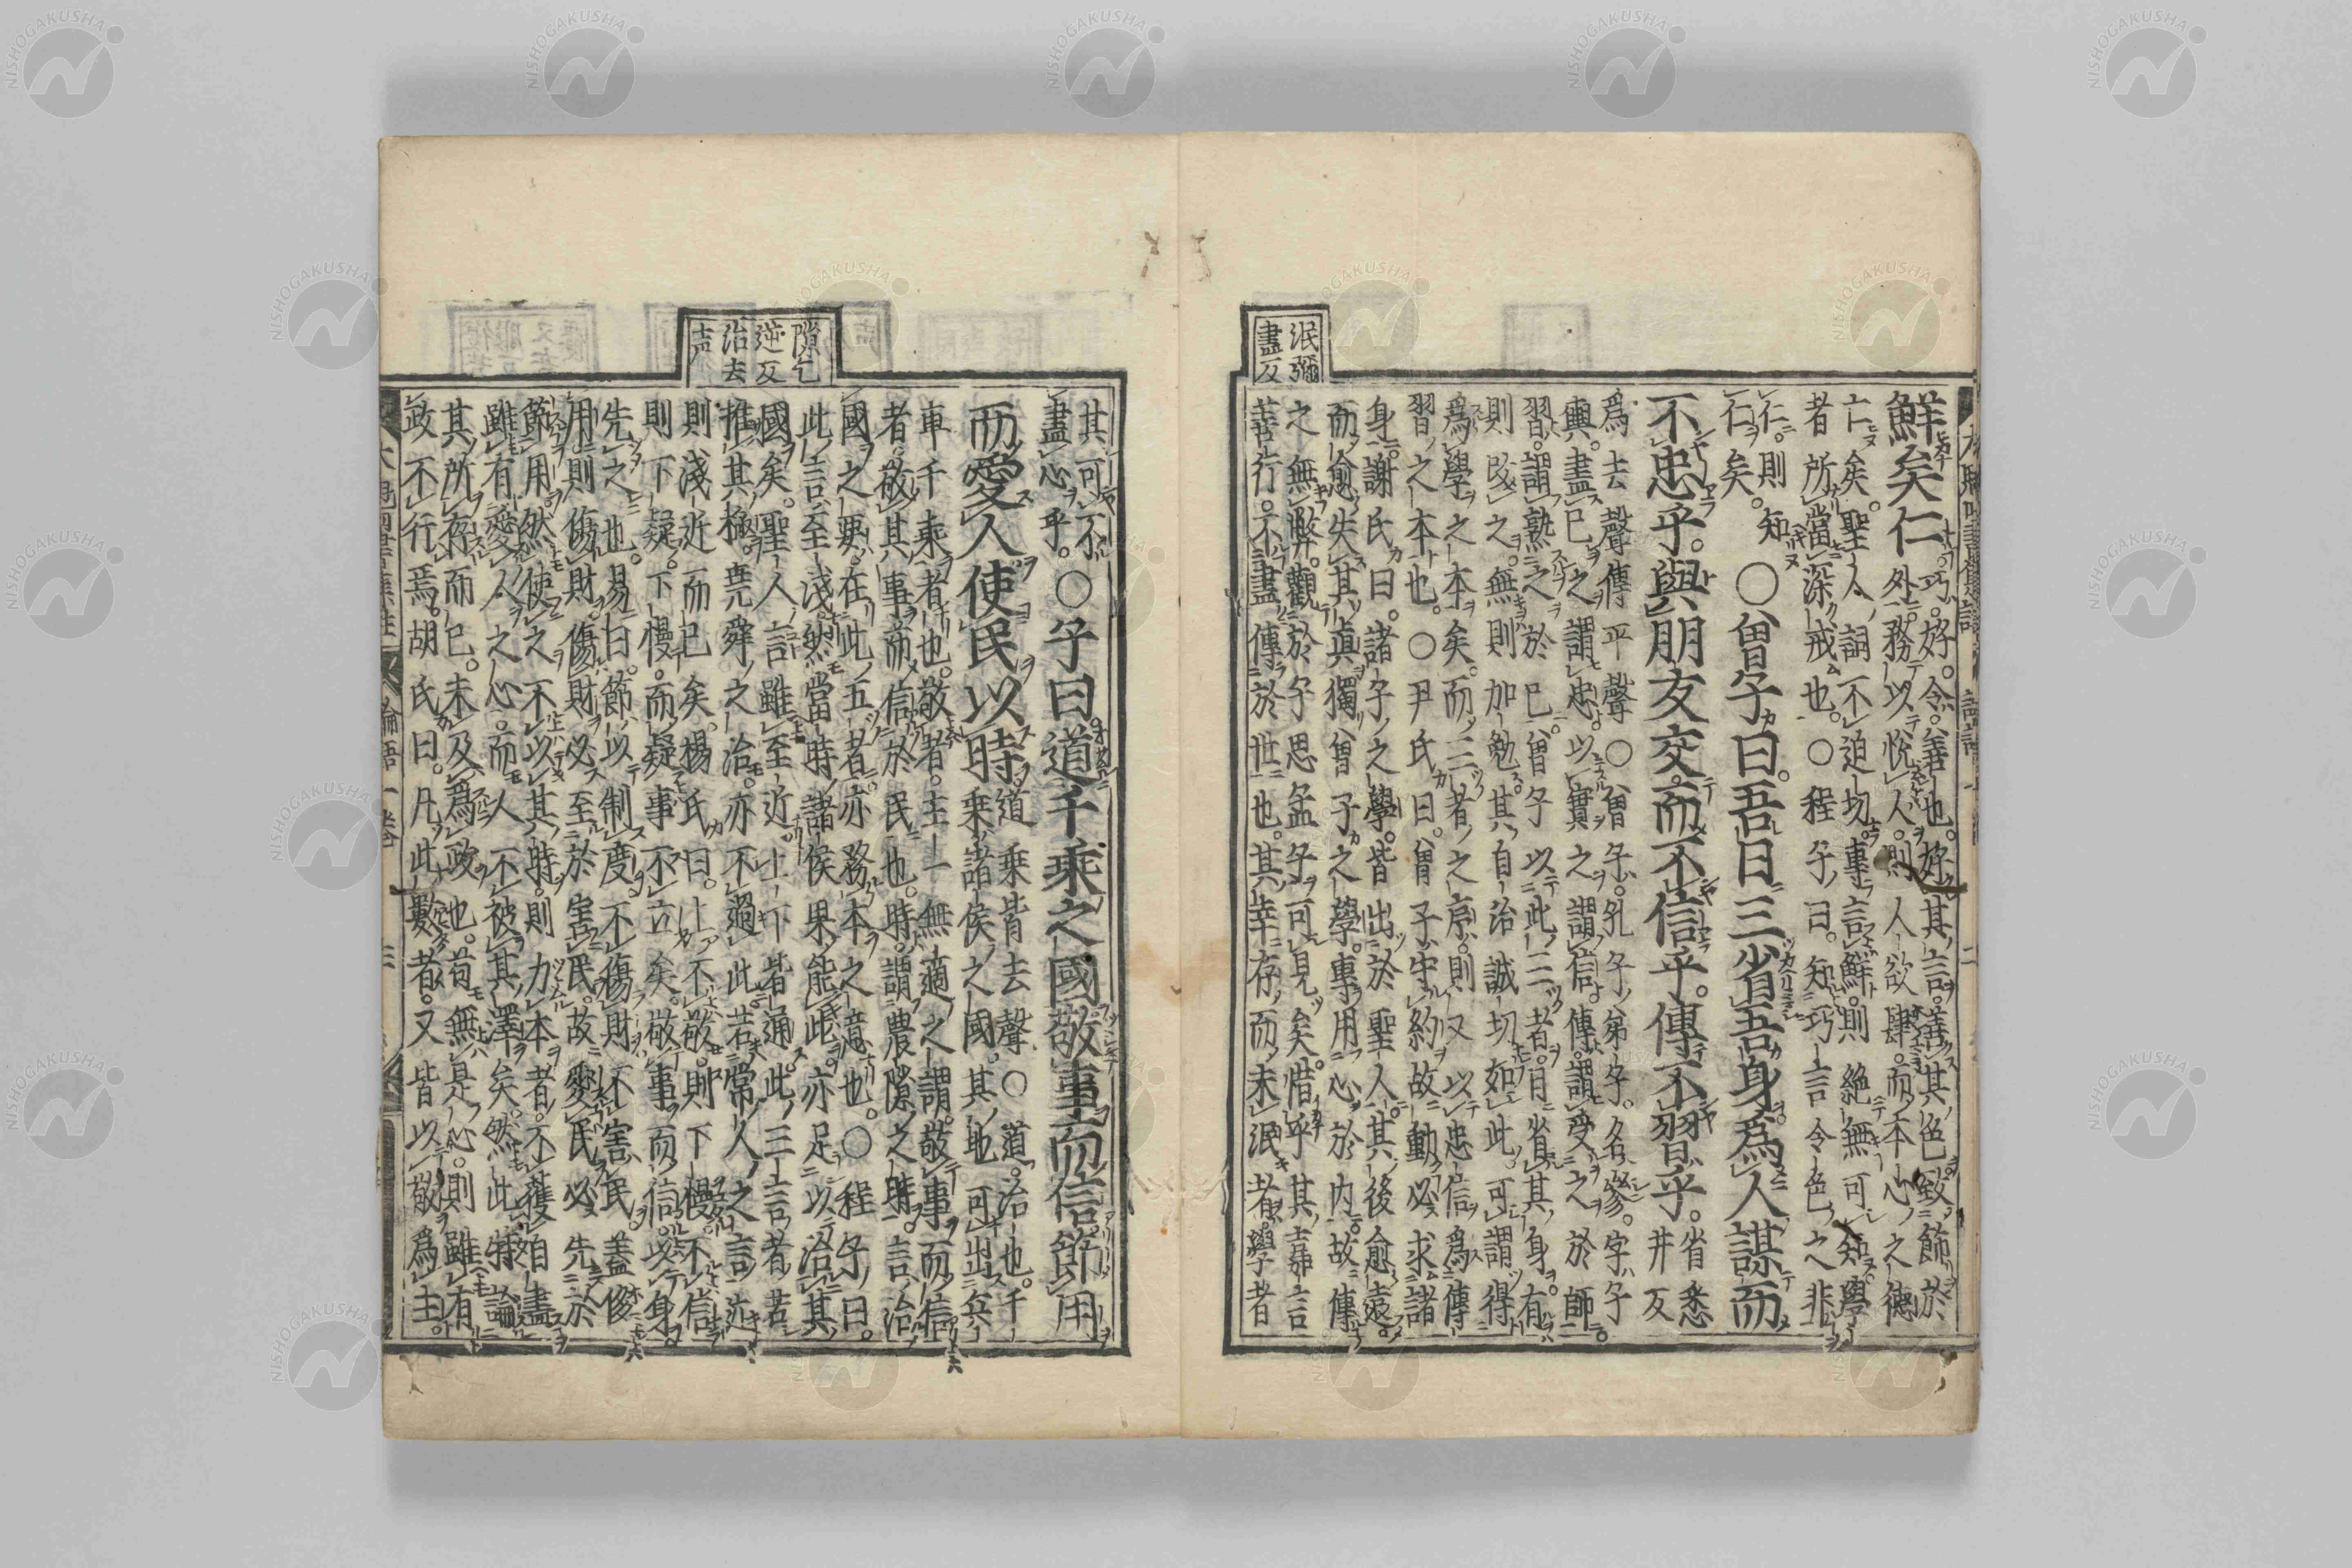 泯彌
盡反
鮮矣仁
巧好令善也好其言善其色致飾於
外務以悅人則人欲肆而本心之德
亡矣聖人詞不迫切專言鮮則絶無可知學
者所當深戒也○程子曰知巧言令色之非
仁則知
仁矣
○曾子曰吾日三省吾身爲人謀而
不忠乎與朋友交而不信乎傳不習乎
省悉
井反
爲去聲傳平聲○曾子孔子弟子名參字子
輿盡己之謂忠以實之謂信傳謂受之於師
習謂熟之於己曾子以此三者日省其身有
則改之無則加勉其自治誠切如此可謂得
爲學之本矣而三者之序則又以忠信爲傳
習之本也○尹氏曰曾子守約故動必求諸
身謝氏曰諸子之學皆出於聖人其後愈遠
而愈失其眞獨曾子之學專用心於内故傳
之無弊觀於子思孟子可見矣惜乎其嘉言
善行不盡傳於世也其幸存而未泯者學者
隙乞
逆反
治去
声
其可不
盡心乎
○子曰道千乘之國敬事而信節用
而愛人使民以時
道乘皆去聲○道治也千
乘諸侯之國其地可出兵
車千乘者也敬者主一無適之謂敬事而信
者敬其事而信於民也時謂農隙之時言治
國之要在此五者亦務本之意也○程子曰
此言至淺然當時諸侯果能此亦足以治其
國矣聖人言雖至近上下皆通此三言者若
推其極堯舜之治亦不過此若常人之言近
則淺近而已矣楊氏曰上不敬則下慢不信
則下疑下慢而疑事不立矣敬事而信以身
先之也易曰節以制度不傷財不害民蓋侈
用則傷財傷財必至於害民故愛民必先於
節用然使之不以其時則力本者不獲自盡
雖有愛人之心而人不被其澤矣然此特論
其所存而已未及爲政也苟無是心則雖有
政不行焉胡氏曰凡此數者又皆以敬爲主
論語一卷 三
NISHOGAKUSHA